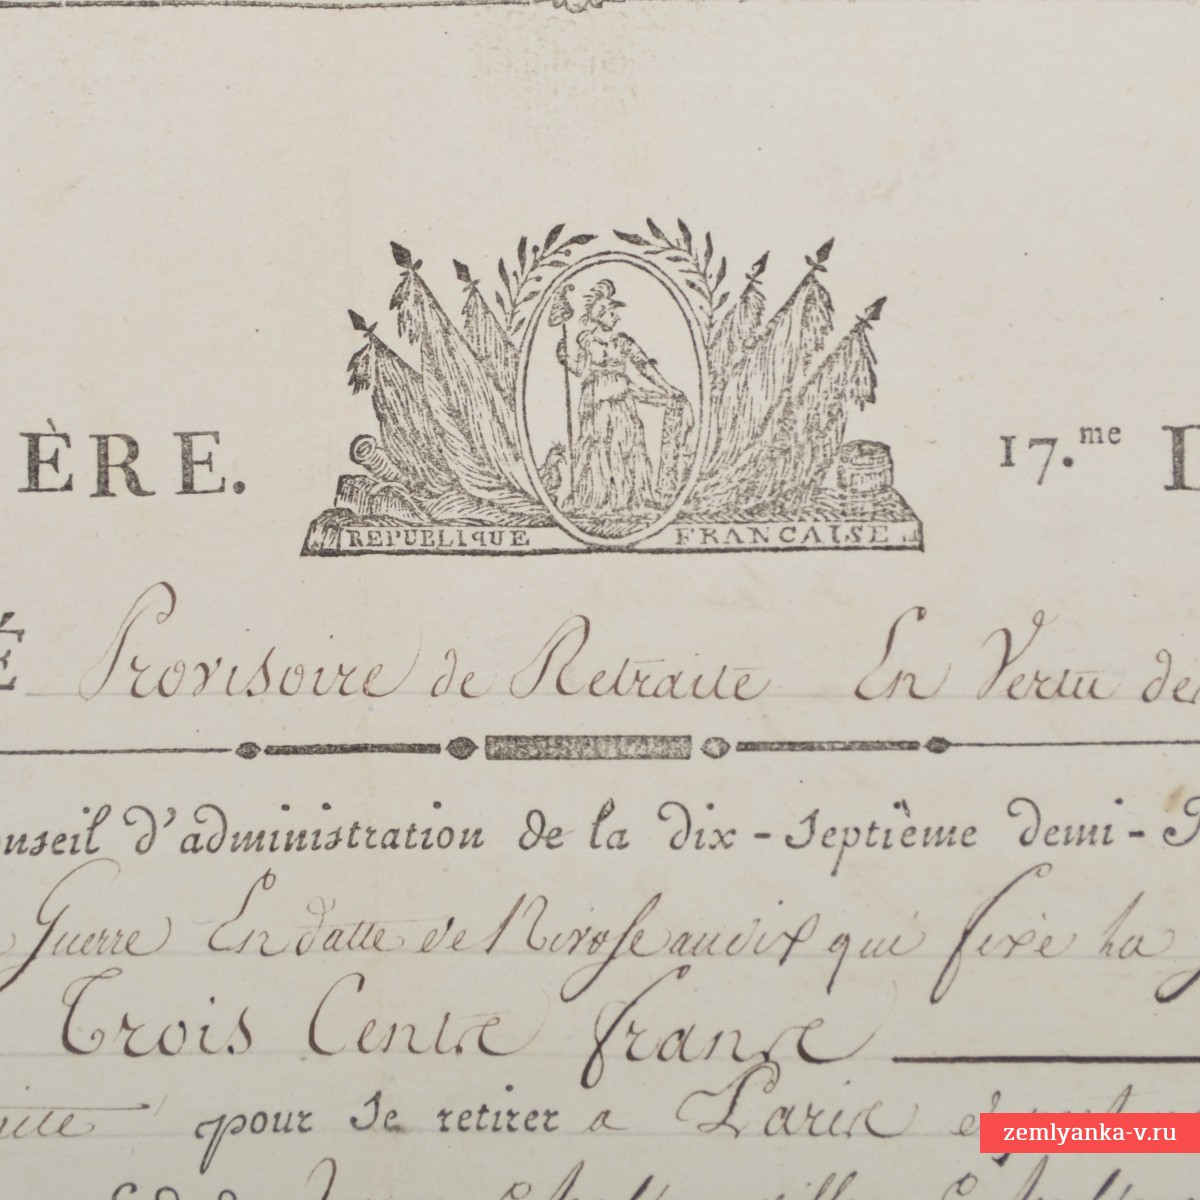 ÈRE. 17.me D
REPUBLIQUE FRANCAISE
É Provisoire de Retraite En Vertu de
onseil d'administration de la dix-septième demi-
Guerre En datte de Nivose an dix qui fixe la
Trois Cents francs
pour se retirer a Paris
zemlyanka-v.ru